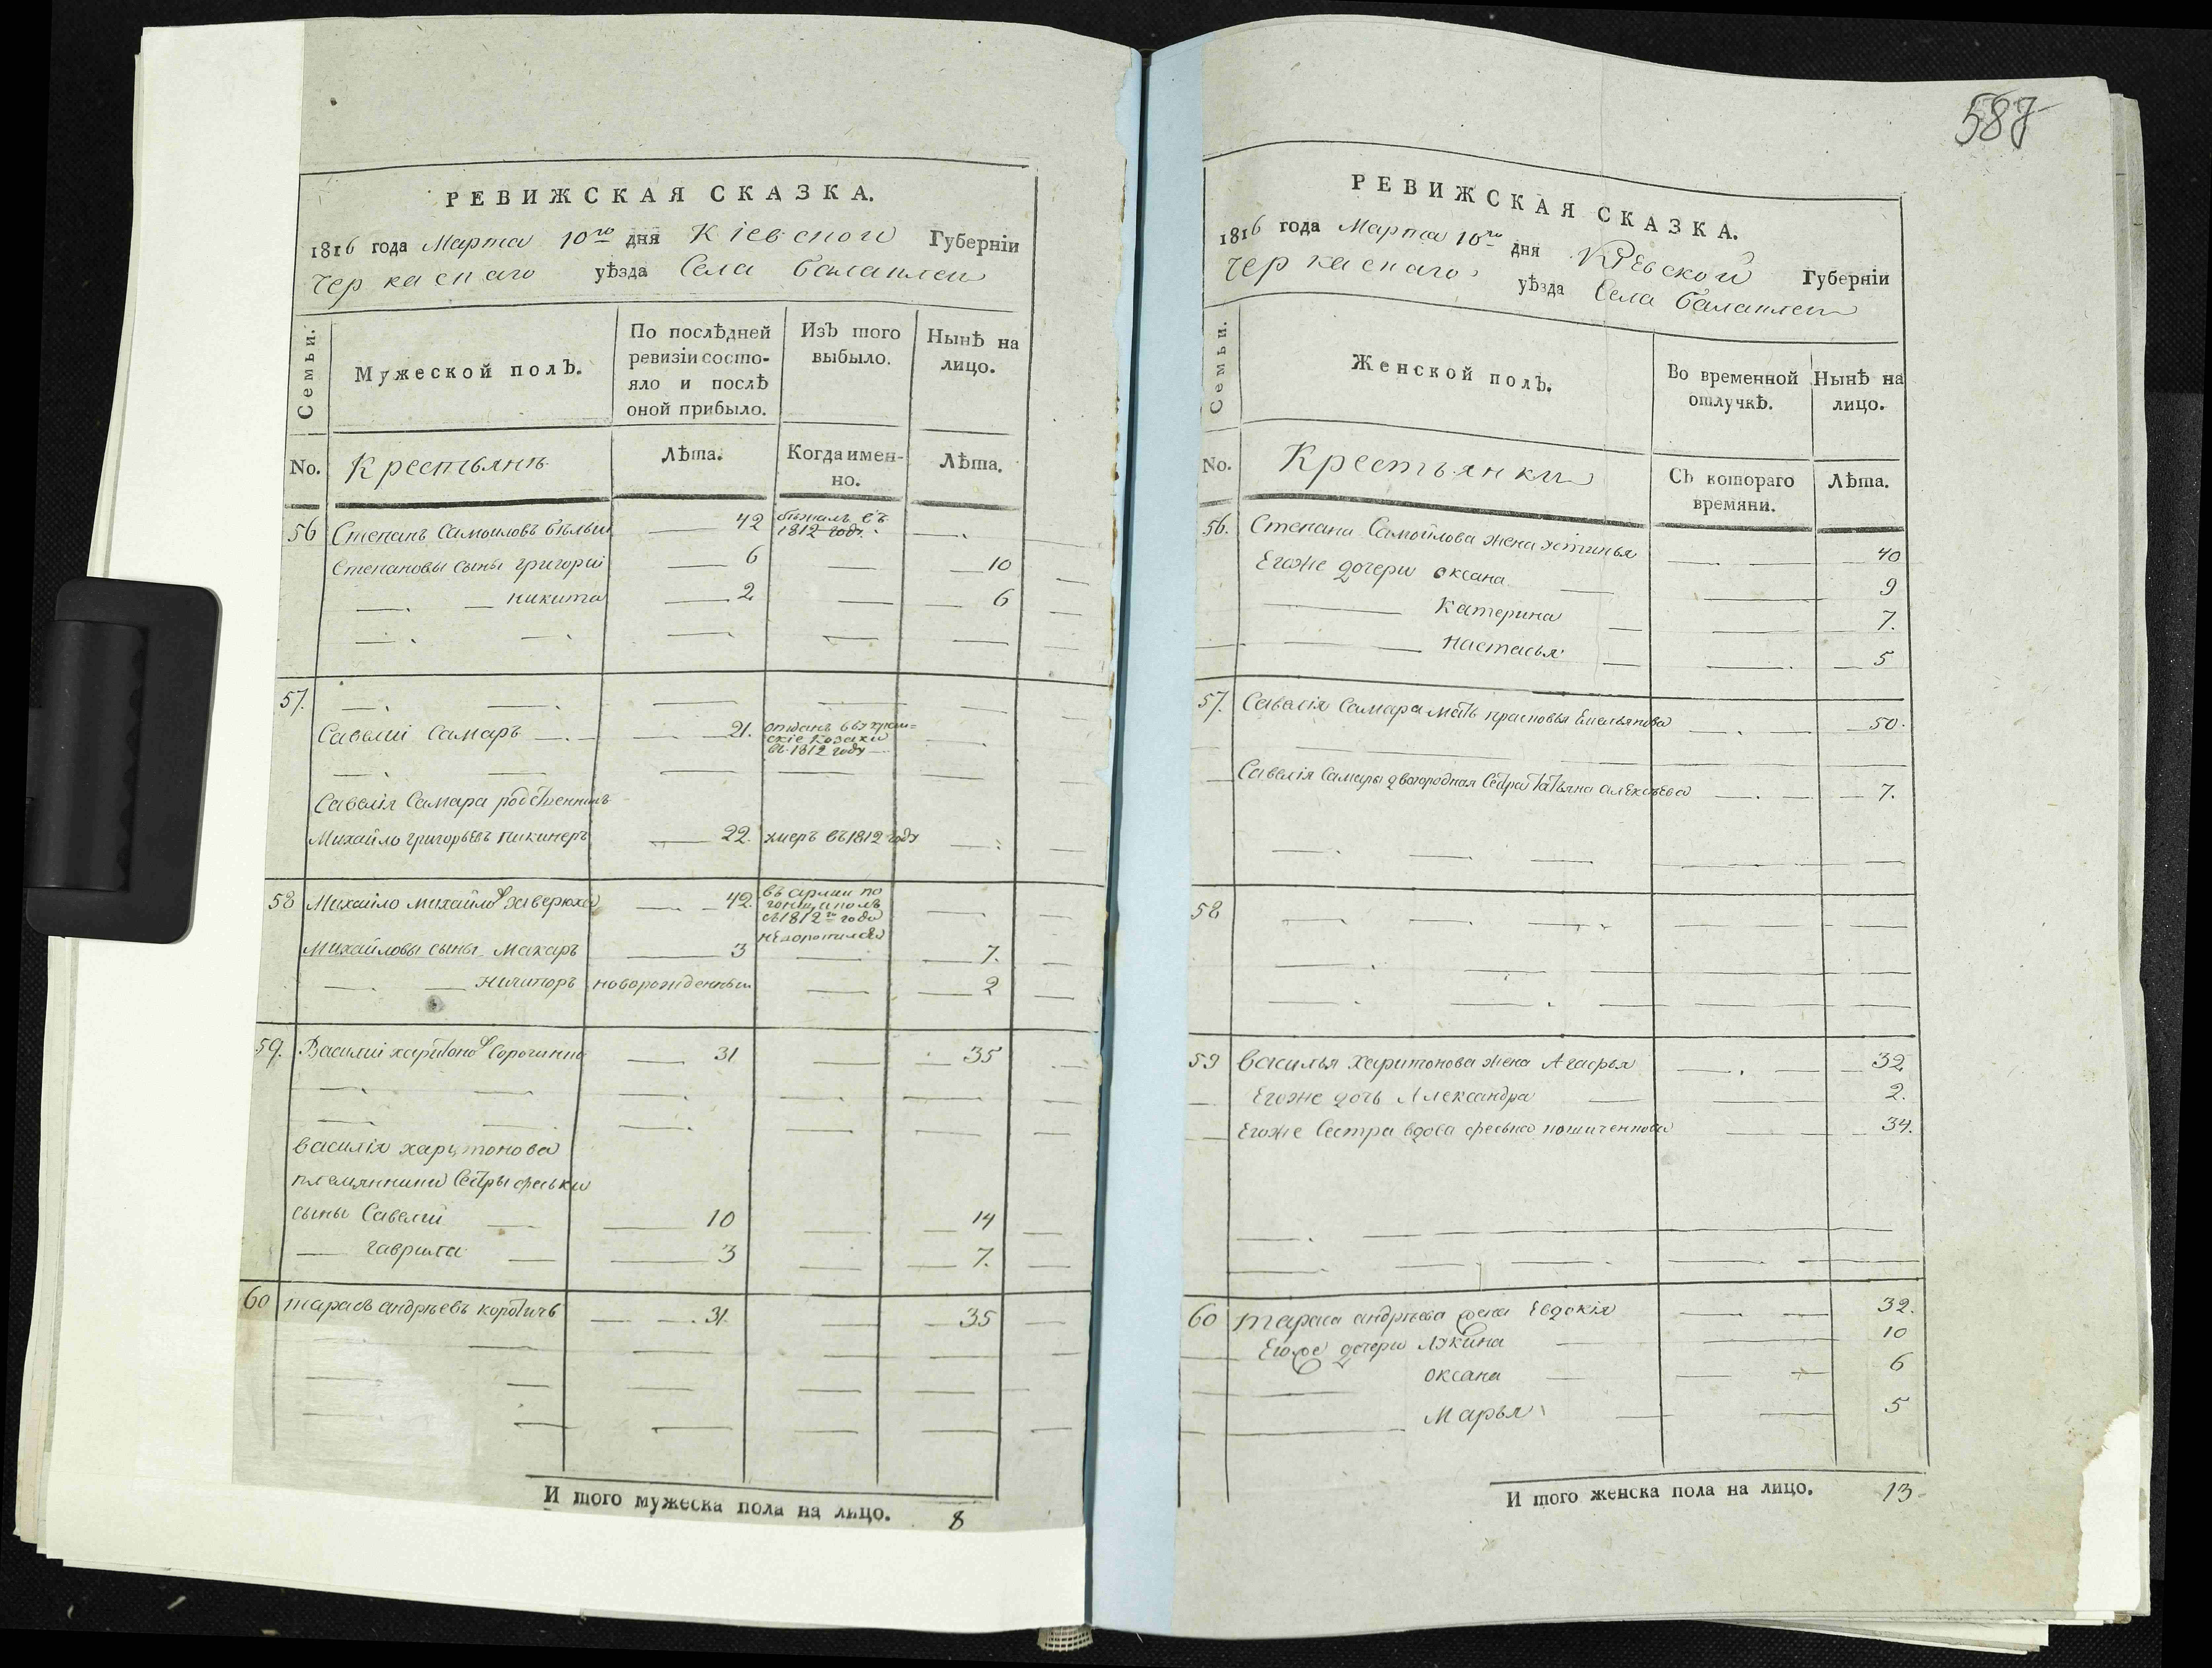 587
РЕВИЖСКАЯ СКАЗКА.
1816 года Марта 10го дня Кіевской Губерніи
Черкаскаго уѣзда Села Балаклеи
Семьи.
Мужеской полЪ.
По послѣдней ревизіи состо-
яло и послѣ
оной прибыло.
ИзЪ того
выбыло.
НынѢ на
лицо.
No.
Крестьянъ
Лѣта.
Когда имен-
но.
Лѣта.
56 Степанъ Самоиловъ бѣлыи 42 бѣжалъ въ
1812 годѣ.
Степановы сыны григорій 6 10
никита 2 6
57.
Савелий Самаръ 21. отданъ въ
скіе козаки
въ 1812 году
Савелія Самара родственникъ
Михайло григорьевъ пикинеръ 22. умеръ въ 1812 году
58 Михайло михайловъ заверюха 42. въ армии по
с 1812го года
Михайловы сыны Макаръ 3 7.
Ничипоръ новорожденный 2
59. Василий харитоновъ 31 35
василія харитонова
племянники Сестры феськи
сыны Савелий 10 14
гаврила 3 7.
60 тарасъ андрѣевъ коротичъ 31. 35
И того мужеска пола на лицо. 8
РЕВИЖСКАЯ СКАЗКА.
1816 года Марта 10го дня Кіевской Губерніи
Черкаскаго уѣзда Села Балаклеи
Семьи.
Женской полЪ.
Во временной
отлучкѢ.
НынѢ на
лицо.
No.
Крестьянки
СЪ котораго
времяни.
Лѣта.
56. Степана Самойлова жена устинья 40
Егоже дочери оксана 9
Катерина 7.
настасья 5
57. Савелія Самара мать прасковья Емельянова 50.
Савелія Самары двоюродная Сестра Татьяна алексѣева 7.
58
59 Василья Харитонова жена Агафья 32
Егоже дочь Александра 2.
Егоже Сестра вдова феська 34.
60 Тараса андрѣева жена Евдокія 32.
Егоже дочери лукина 10
оксана 6
Марья 5
И того женска пола на лицо. 13